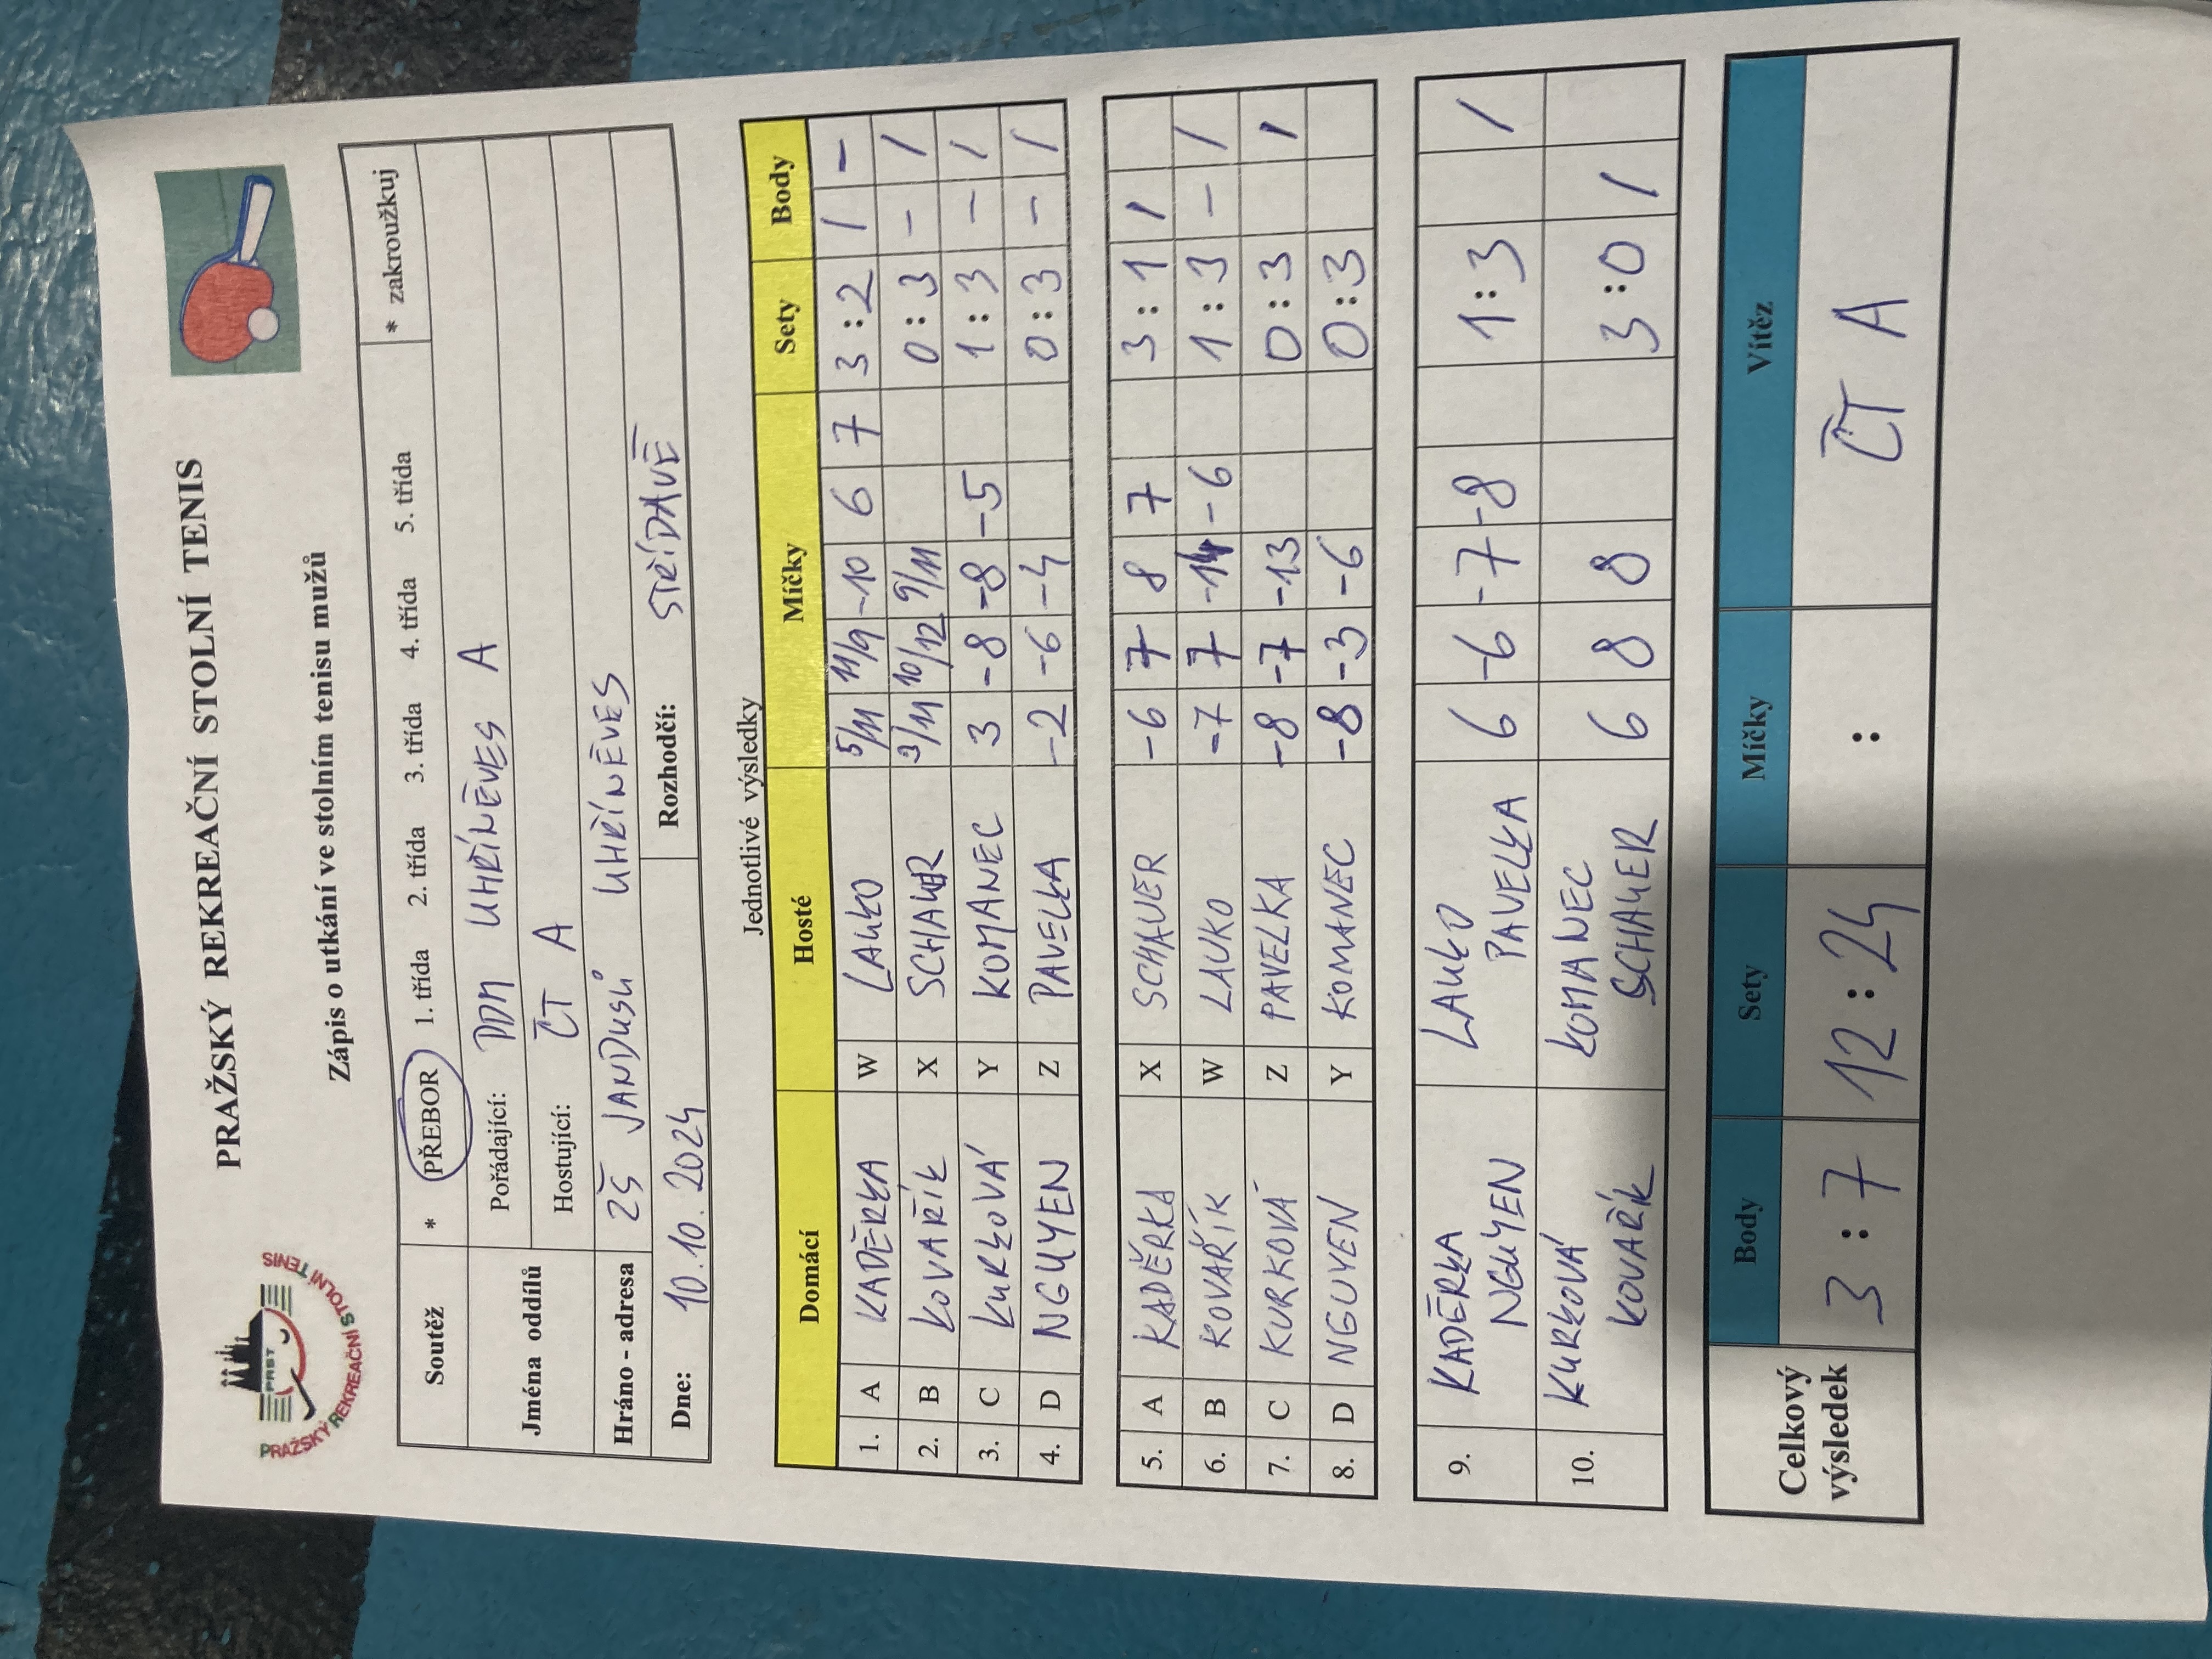 PRAŽSKÝ REKREAČNÍ STOLNÍ TENIS
PRST
PRAŽSKÝ REKREAČNÍ STOLNÍ TENIS
Zápis o utkání ve stolním tenisu mužů
Soutěž * PŘEBOR 1. třída 2. třída 3. třída 4. třída 5. třída * zakroužkuj
Jména oddílů Pořádající: DDM UHŘÍNĚVES A
Hostující: ČT A
Hráno - adresa ZŠ JANDUSŮ UHŘÍNĚVES
Dne: 10.10.2024 Rozhodčí: STŘÍDAVĚ
Jednotlivé výsledky
Domácí Hosté Míčky Sety Body
1. A KADĚRKA W LAUKO 5/11 11/9 -10 6 7 3:2 1 -
2. B KOVAŘÍK X SCHAUER 3/11 10/12 9/11 0:3 - 1
3. C KURKOVÁ Y KOMANEC 3 -8 -8 -5 1:3 - 1
4. D NGUYEN Z PAVELKA -2 -6 -4 0:3 - 1
5. A KADĚRKA X SCHAUER -6 7 8 7 3:1 1
6. B KOVAŘÍK W LAUKO -7 7 -14 -6 1:3 - 1
7. C KURKOVÁ Z PAVELKA -8 -7 -13 0:3 1
8. D NGUYEN Y KOMANEC -8 -3 -6 0:3
9. KADĚRKA LAUKO 6 -6 -7 -8 1:3 1
NGUYEN PAVELKA
10. KURKOVÁ KOMANEC 6 8 8 3:0 1
KOVAŘÍK SCHAUER
Celkový výsledek Body Sety Míčky Vítěz
3:7 12:24 : ČT A